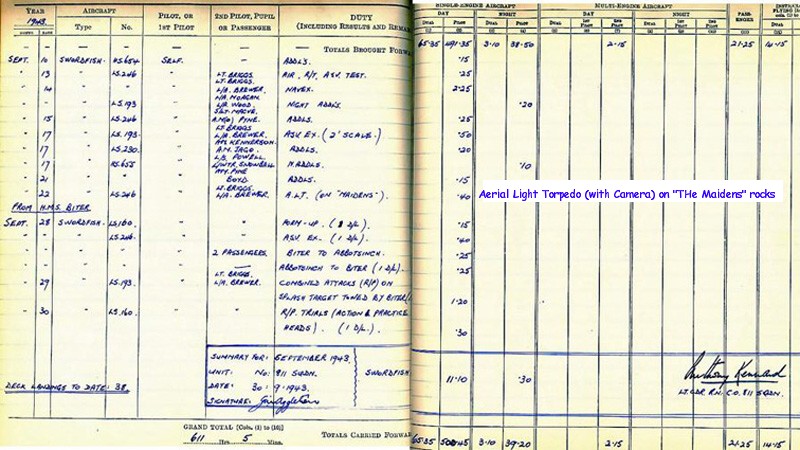 YEAR AIRCRAFT PILOT, OR 2ND PILOT, PUPIL DUTY SINGLE-ENGINE AIRCRAFT MULTI-ENGINE AIRCRAFT
1943. Type No. 1ST PILOT OR PASSENGER (INCLUDING RESULTS AND REMAR DAY NIGHT DAY NIGHT
TOTALS BROUGHT FORWAR 65·35 491·35 3·10 38·50 2·15 21·25 14·15
SEPT. 10 SWORDFISH. HS.654 SELF. — ADDLS. ·15
" 13 " LS.246 " LT. BRIGGS. AIR, R/T, ASV. TEST. ·25
LT. BRIGGS.
" 14 " " L/A. BREWER. NAVEX. 2·25
N/A. MORGAN.
" " LS.193 " L/A. WOOD. NIGHT ADDLS. ·20
" 15 " LS.246 " PINE. ADDLS. ·25
LT. BRIGGS
" 17 " LS.193. " L/A. BREWER. ASV EX. (2' SCALE.) ·50
" 17 " LS.230. " A.M. JAGO. ADDLS. ·20
L/A. POWELL.
" 17 " HS.655 " N.ADDLS. ·10
PINE.
" 21 " " BOYD. ADDLS. ·15
LT. BRIGGS.
" 22 " LS.246 " L/A. BREWER. A.L.T. (ON "MAIDENS"). ·40 Aerial Light Torpedo (with Camera) on "The Maidens" rocks
FROM H.M.S. BITER
SEPT. 28 SWORDFISH. LS.160. " — FORM-UP. (1 D/L). ·15
" " " LS.246. " — ASV. EX. (1 D/L). ·40
" " " " " 2 PASSENGERS. BITER TO ABBOTSINCH. ·25
" " " " " — ABBOTSINCH TO BITER (1 D/L). ·25
LT. BRIGGS.
" 29 " LS.193. " L/A. BREWER. COMBINED ATTACKS (R/P) ON
SPLASH TARGET TOWED BY BITER 1·20
" 30 " LS.160. " " R/P. TRIALS (ACTION & PRACTICE
HEADS). (1 D/L.) ·30
SUMMARY FOR: SEPTEMBER 1943.
UNIT: No: 811 SQDN. SWORDFISH 11·10 ·30
DECK LANDINGS TO DATE: 38. DATE: 30·9·1943.
SIGNATURE:
Anthony Kennard
LT. CDR. R.N. CO. 811 SQDN.
GRAND TOTAL [Cols. (1) to (10)]
611 Hrs. 5 Mins. TOTALS CARRIED FORWAR 65·35 3·10 39·20 2·15 21·25 14·15